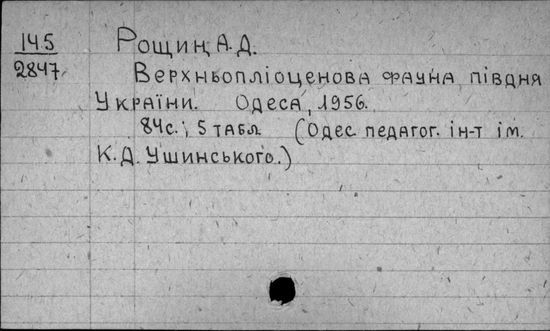 145
2847
Рощин, А.Д.
Верхньопліоценова фауна півдня
України. Одеса, 1956.
84с.; 5 табл (Одес педагог. ін-т ім.
К.Д. Ушинського.)